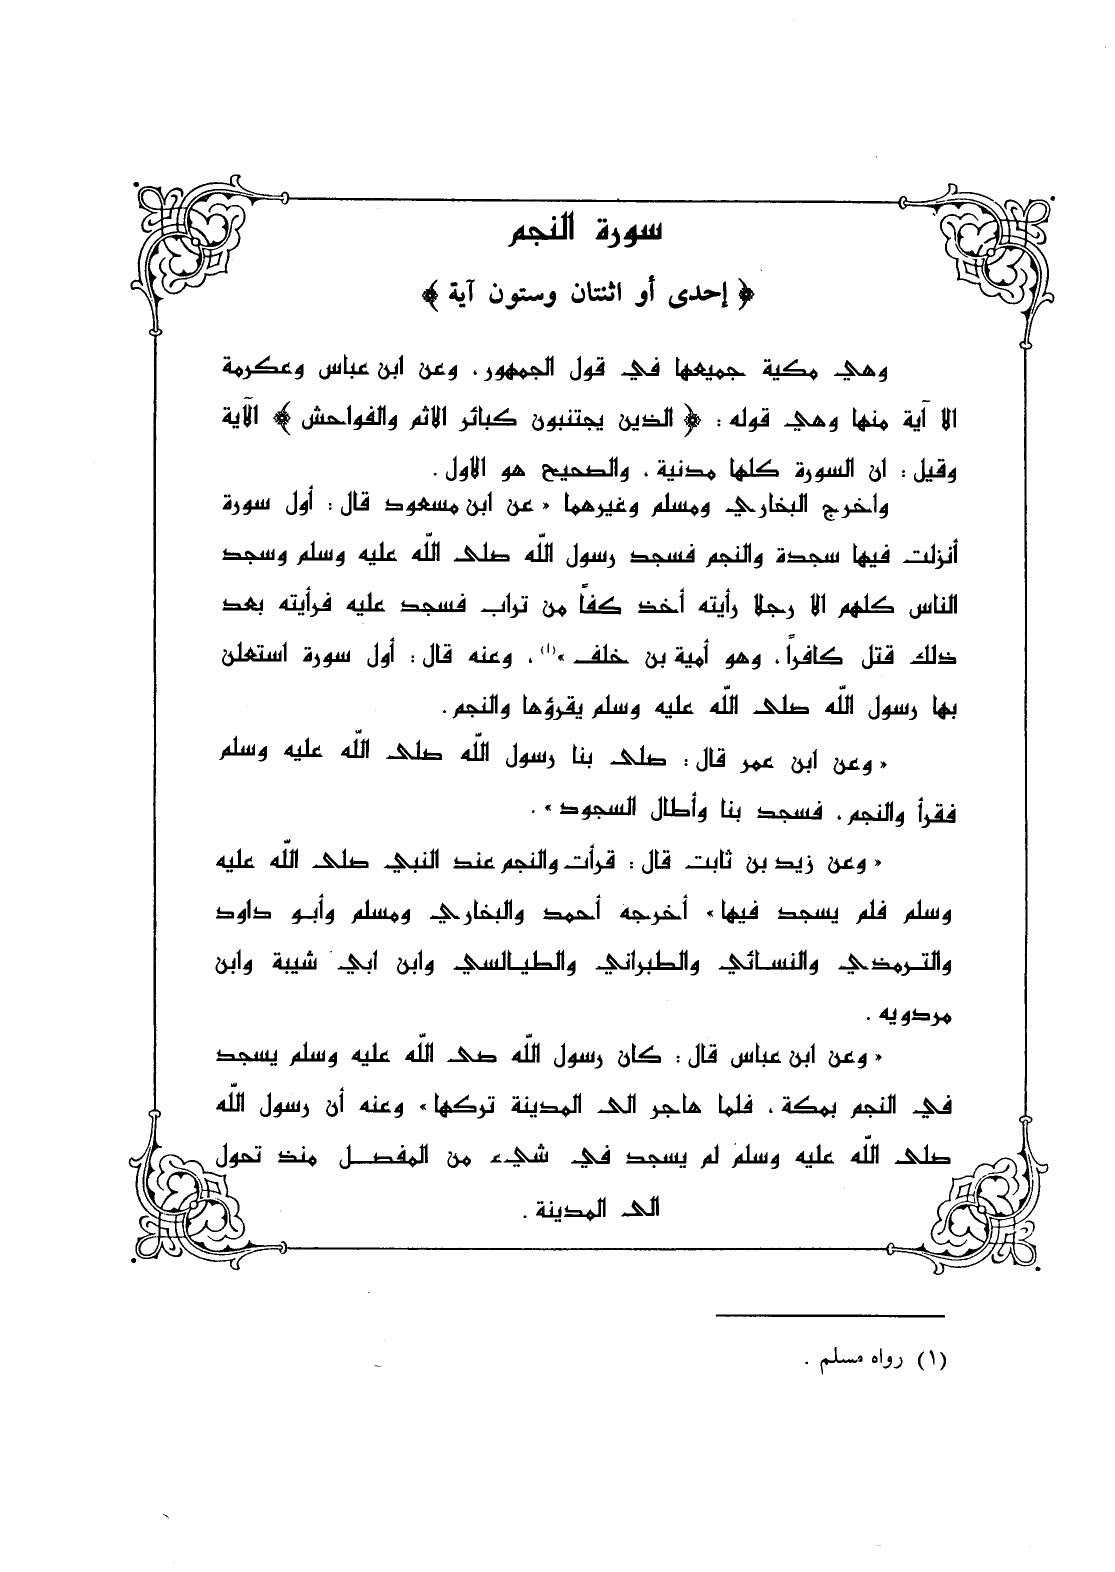 سورة النجم
﴿ إحدى أو اثنتان وستون آية ﴾
وهي مكية جميعها في قول الجمهور، وعن ابن عباس وعكرمة
الا آية منها وهي قوله : ﴿ الذين يجتنبون كبائر الاثم والفواحش ﴾ الآية
وقيل : ان السورة كلها مدنية ، والصحيح هو الاول .
واخرج البخاري ومسلم وغيرهما « عن ابن مسعود قال : أول سورة
أنزلت فيها سجدة والنجم فسجد رسول الله صلى الله عليه وسلم وسجد
الناس كلهم الا رجلا رأيته أخذ كفاً من تراب فسجد عليه فرأيته بعد
ذلك قتل كافراً، وهو أمية بن خلف »(١)، وعنه قال : أول سورة استعلن
بها رسول الله صلى الله عليه وسلم يقرؤها والنجم .
« وعن ابن عمر قال : صلى بنا رسول الله صلى الله عليه وسلم
فقرأ والنجم ، فسجد بنا وأطال السجود » .
« وعن زيد بن ثابت قال : قرأت والنجم عند النبي صلى الله عليه
وسلم فلم يسجد فيها » أخرجه أحمد والبخاري ومسلم وأبو داود
والترمذي والنسائي والطبراني والطيالسي وابن ابي شيبة وابن
مردويه .
« وعن ابن عباس قال : كان رسول الله صى الله عليه وسلم يسجد
في النجم بمكة ، فلما هاجر الى المدينة تركها » وعنه أن رسول الله
صلى الله عليه وسلم لم يسجد في شيء من المفصل منذ تحول
الى المدينة .
(١) رواه مسلم .